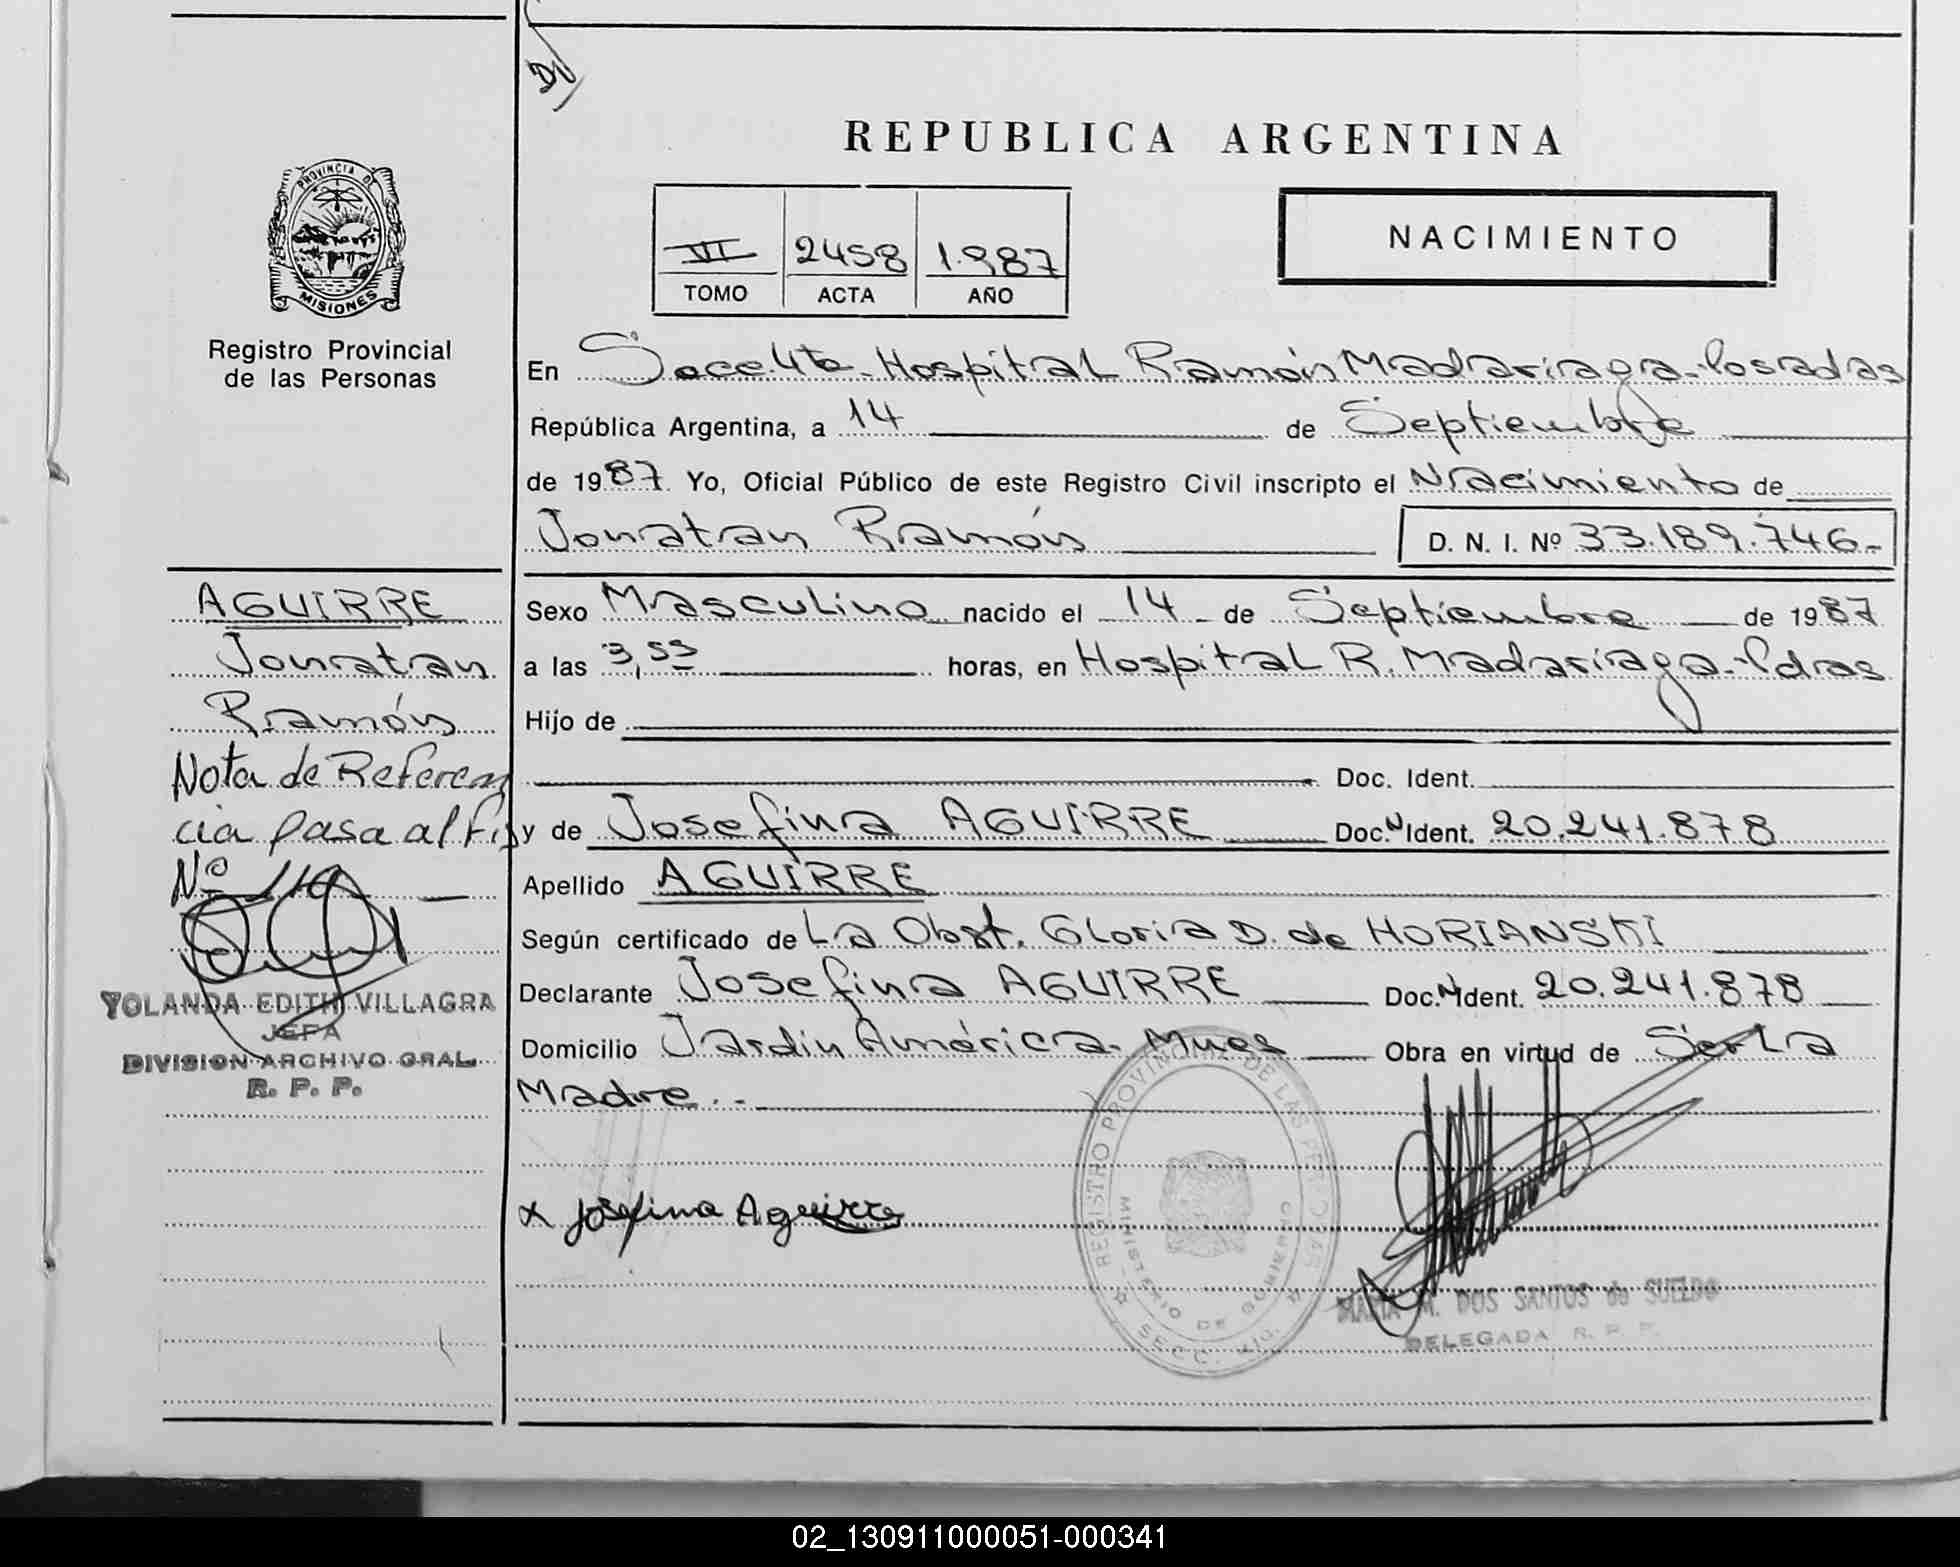 REPUBLICA ARGENTINA
PROVINCIA DE
MISIONES
Registro Provincial
de las Personas
VI 2458 1.987
TOMO ACTA AÑO
NACIMIENTO
En Secc. 4ta. Hospital Ramón Madariaga - Posadas
República Argentina, a 14 de Septiembre
de 1987. Yo, Oficial Público de este Registro Civil inscripto el Nacimiento de
Jonatan Ramón D. N. I. Nº 33.189.746.-
AGUIRRE
Jonatan
Ramón
Nota de Referen
cia pasa al
Nº
YOLANDA EDITH VILLAGRA
JEFA
DIVISION ARCHIVO GRAL.
R. P. P.
Sexo Masculino nacido el 14 - de Septiembre de 1987
a las 3,55 horas, en Hospital R. Madariaga - Pdas
Hijo de
Doc. Ident.
y de Josefina AGUIRRE Doc. N Ident. 20.241.878
Apellido AGUIRRE
Según certificado de La Obst. Gloria D. de HORIANSKI
Declarante Josefina AGUIRRE Doc. N Ident. 20.241.878
Domicilio Jardín América - Mnes Obra en virtud de Ser La
Madre . -
x Josefina Aguirre
REGISTRO PROVINCIAL DE LAS PERSONAS
MINISTERIO DE GOBIERNO
SECC.
MARIA M. DOS SANTOS de SUELDO
DELEGADA R. P. P.
02_130911000051-000341